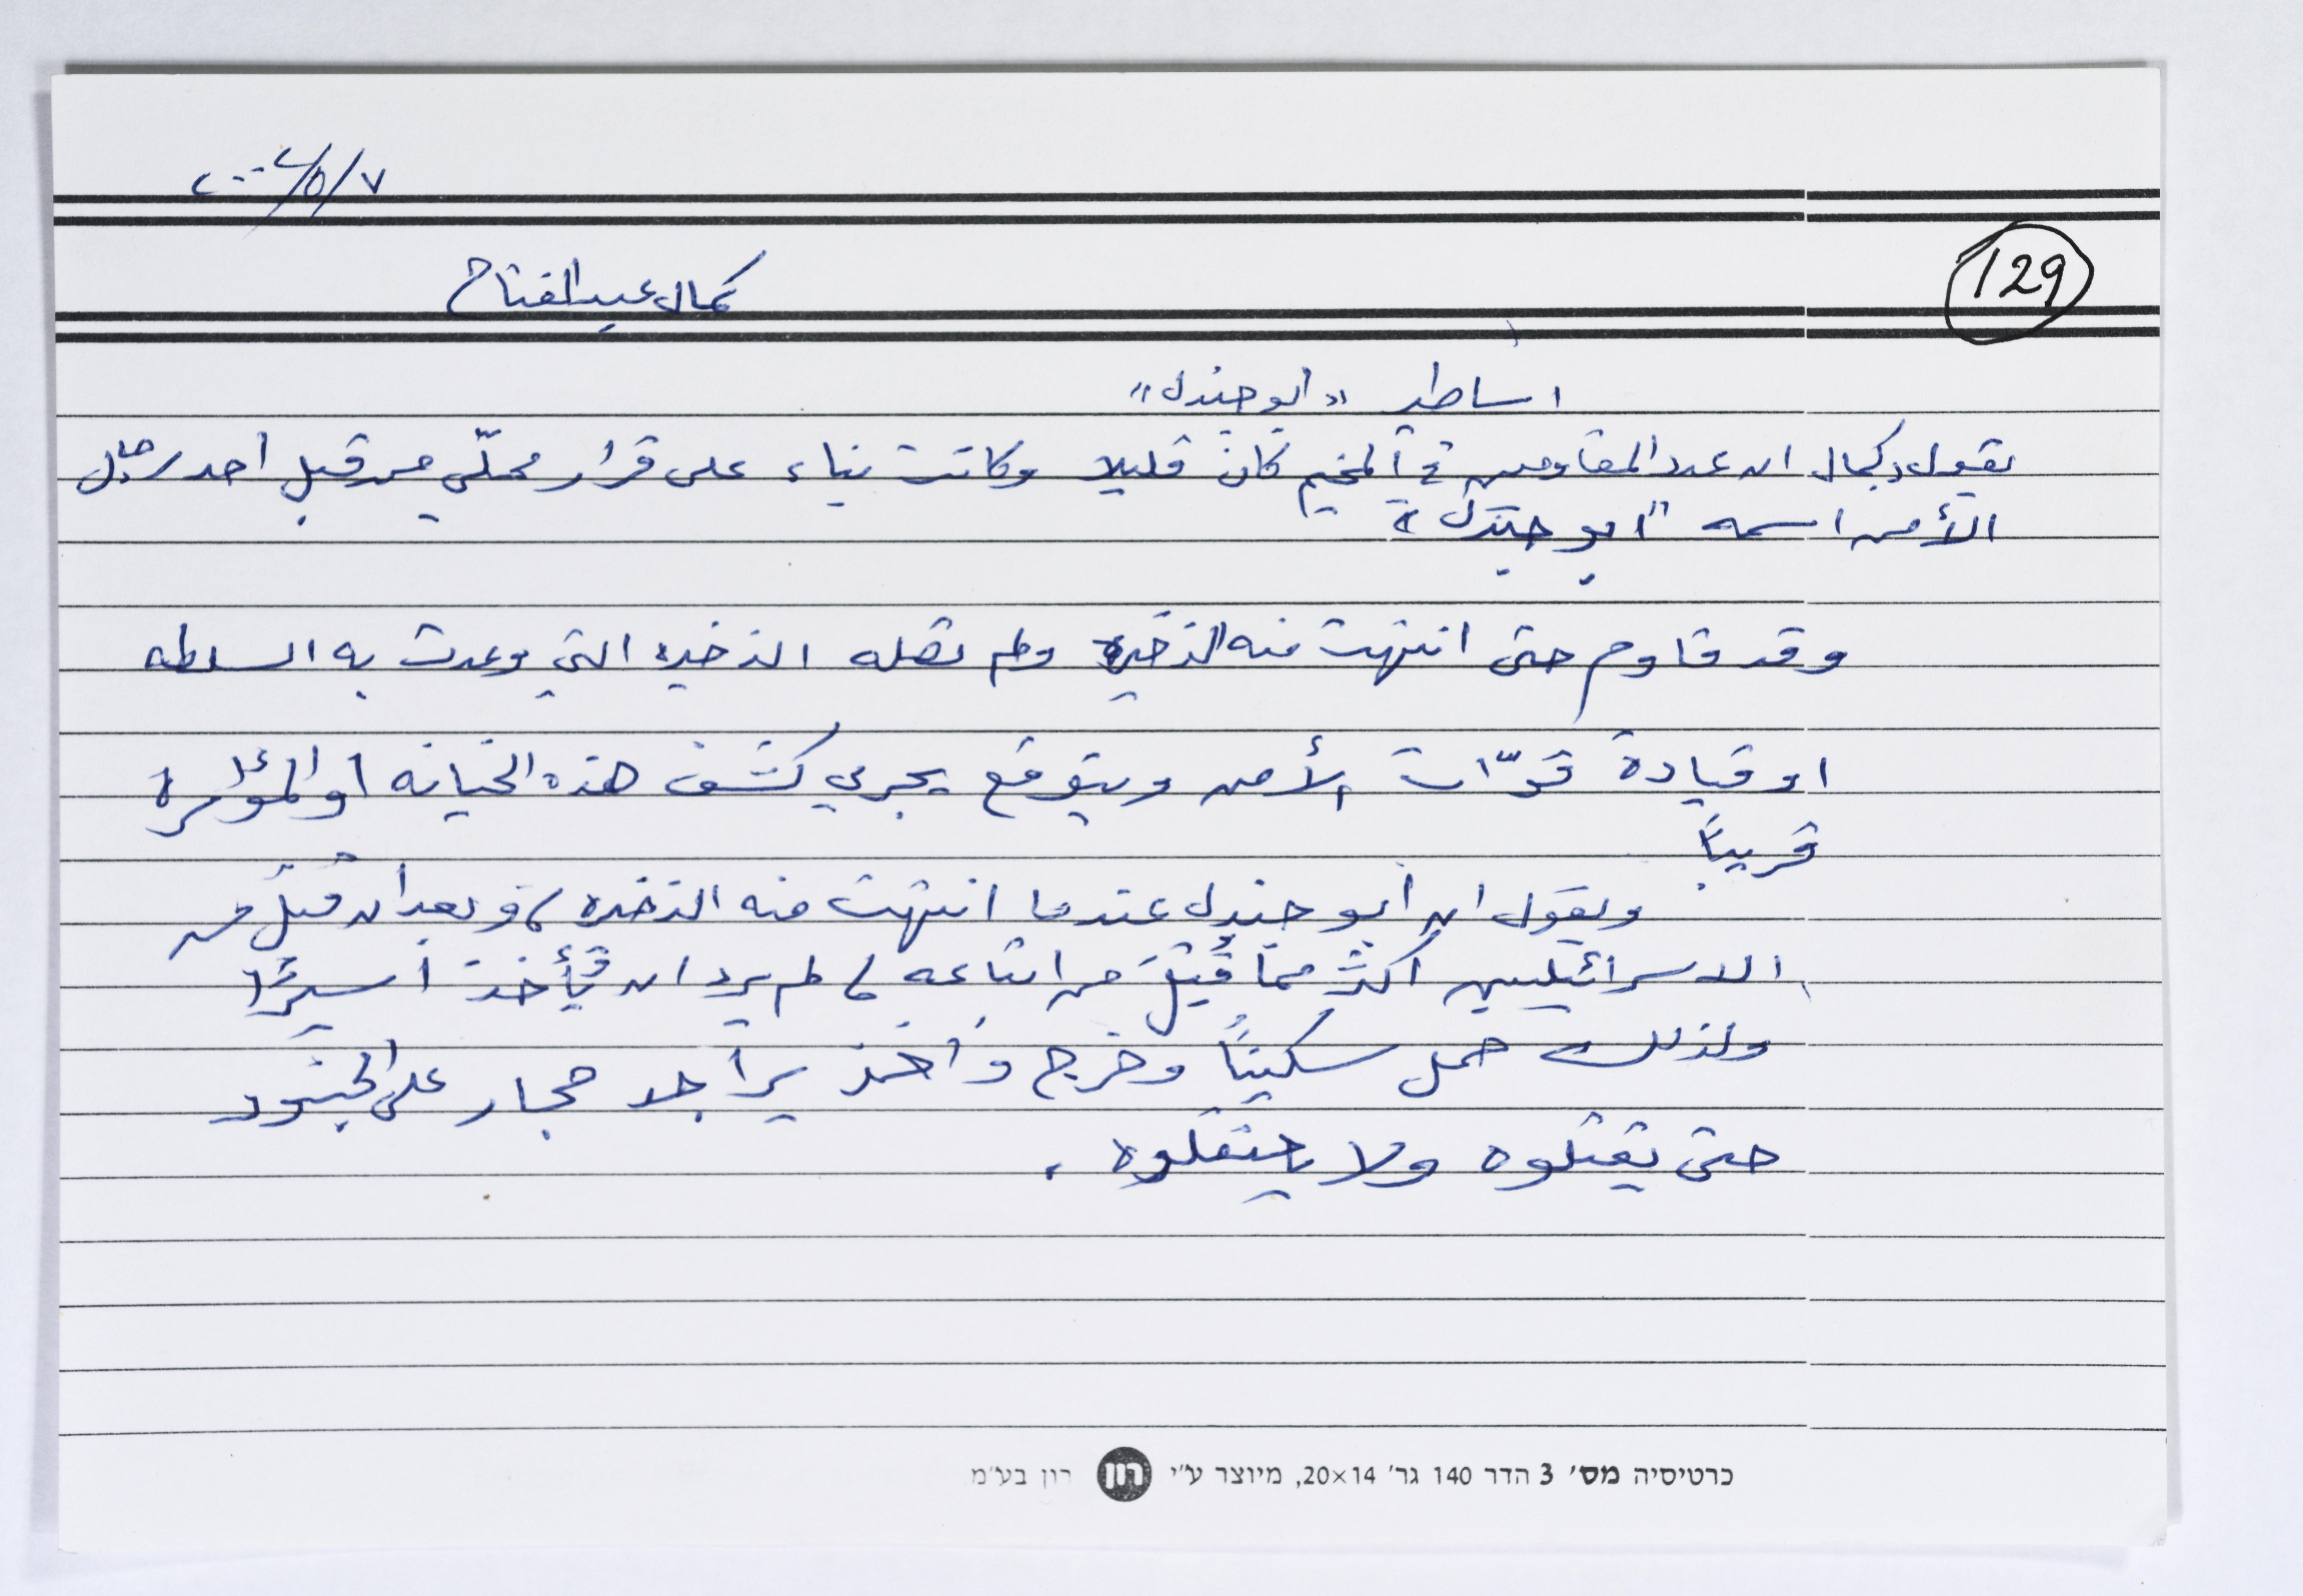 ٢٠٠٢/٥/٧
129
كمال عبد الفتاح
اساطير «ابو جندل»
يقول د. كمال ان عدد المقاومين في المخيم كان قليلا وكانت بناء على قرار محلّي من قبل احد رجال
الأمن اسمه "ابو جندل"
وقد قاوم حتى انتهت منه الذخيرة ولم تصله الذخيره التي وعدت به السلطه
او قيادة قوّات الأمن ويتوقع يجري كشف هذه الخيانه او المؤامرة
قريباً
ويقول ان أبو جندل عندما انتهت منه الذخيره، وبعد ان قتل من
الاسرائيليين اكثر ممّا قُتِلَ من اتباعه، لم يرد ان يُأخذ أسيرًا
ولذلك حمل سكيناً وخرج وأخذ يراجد حجار على الجنود
حتى يقتلوه ولا يعتقلوه.
כרטיסיה מס׳ 3 הדר 140 גר׳ 20×14, מיוצר ע״י רון רון בע״מ